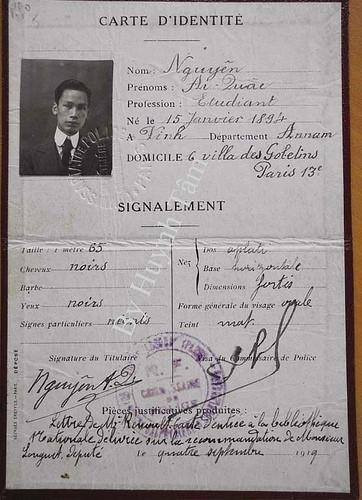 CARTE D'IDENTITÉ
Nom: Nguyễn
Prénoms: Ái-Quấc
Profession: Etudiant
Né le 15 Janvier 1894
A Vinh Département Annam
DOMICILE 6 villa des Gobelins
Paris 13e
SIGNALEMENT
Taille: 1 mètre 65
Cheveux noirs
Barbe
Yeux noirs
Signes particuliers
Nez
Dos aplati
Base horizontale
Dimensions fortes
Forme générale du visage ovale
Teint mat.
Signature du Titulaire
Visa du Commissaire de Police
Nguyễn A. Q.
Pièces justificatives produites:
Lettre de Mr Renoult Carte d'entrée à la bibliothèque
Nationale délivrée sur la recommandation de Monsieur
Longuet, député le quatre septembre 1919
By Huynh Tâm